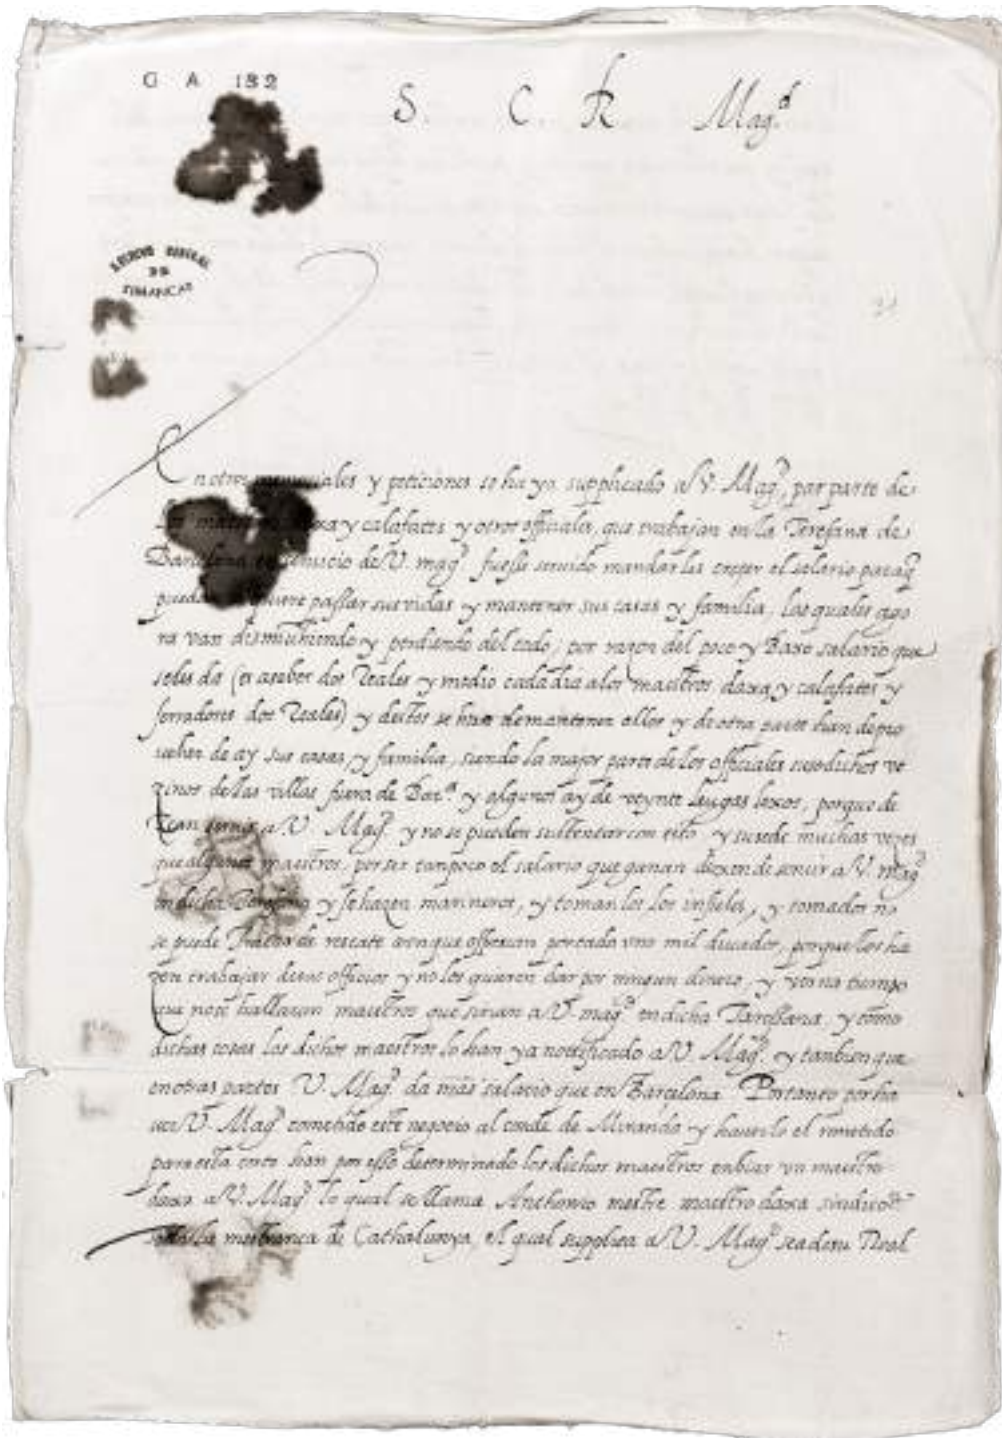 G A 182
S. C. R. Mag.d
ARCHIVO GENERAL
DE
SIMANCAS
En otros memoriales y peticiones se ha ya supplicado a V. Mag.d, por parte de
los daxa y calafates y otros officiales, que trabajan en la Teresana de
Barcelona en servicio de V. mag.d fuesse servido mandarles crecer el salario paraq
puedan passar sus vidas y mantener sus casas y familia, los quales ago
ra van disminuiendo y perdiendo del todo, por razon del poco y Baxo salario que
seles da (es asaber dos Reales y medio cada dia alos maestros daxa, y calafates y
serradores dos Reales) y destos se han demantener ellos y de otra parte han depro
veher de ay sus casas, y familia, siendo la major parte de los officiales susodichos ve
zinos delas villas fuera de Bar.na y algunos ay de veynte leugas lexos, porque de
sean servir a V. Mag.d y no se pueden sustentar con esto y sucede muchas vezes
que algunos maestros, por ser tampoco el salario que ganan dexan de servir a V. mag.d
en dicha y se hazen marineros, y toman los los infieles, y tomados no
se puede Tractar de rescate aunque offrescan por cada uno mil ducados, porque los ha
zen trabajar officios y no los quieren dar por ningun dinero, y verna tiempo
que no se hallaran maestros que sirvan a V. mag.d en dicha Tarassana, y como
dichas cosas los dichos maestros lo han ya notificado a V. Mag.d y tambien que
en otras partes V. Mag.d da mas salario que en Barçelona Portanto por ha
ver V. Mag.d cometido este negocio al conde de Miranda y haverlo el remetido
para esta corte han por esso determinado los dichos maestros enbiar un maestro
daxa a V. Mag.d lo qual se llama Anthonio mestre maestro daxa sindico
la mestrança de Cathalunya, el qual supplica a V. Mag.d sea de su Real